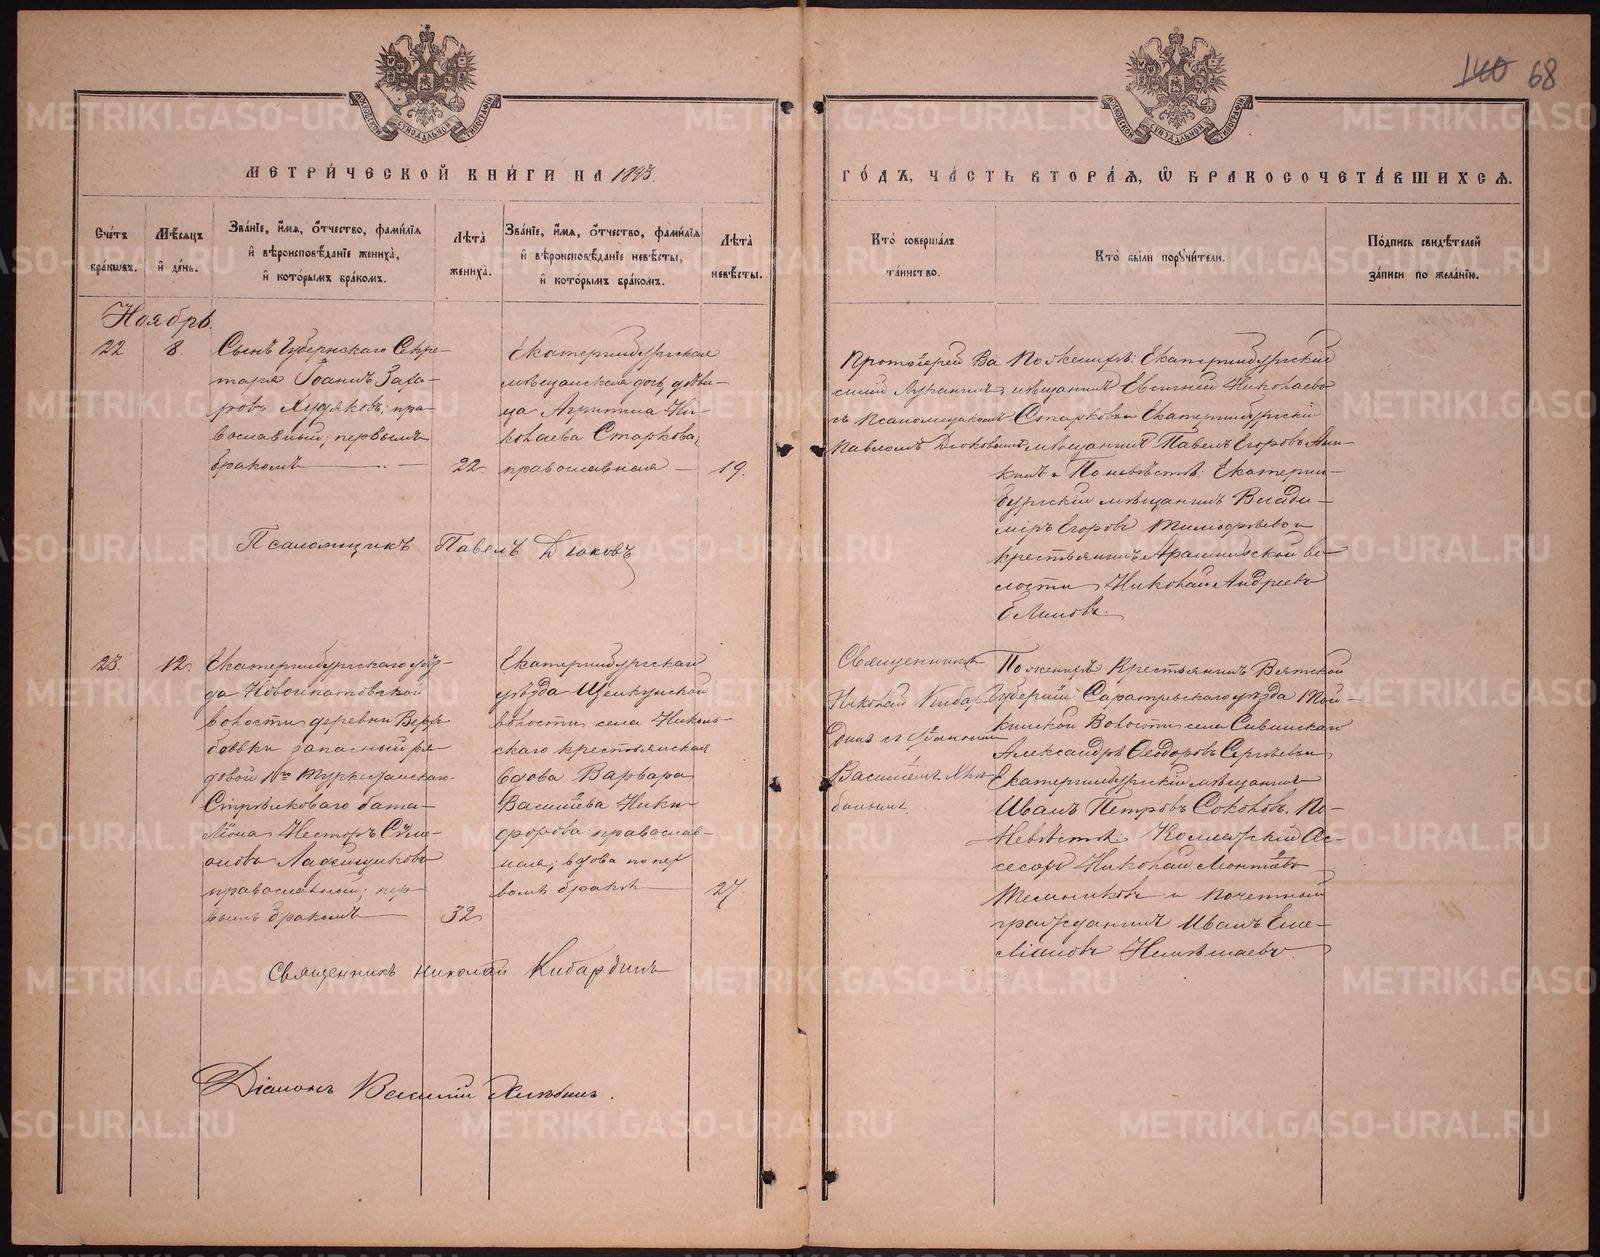 140 68
МЕТРИЧЕСКОЙ КНИГИ НА 1893
ГОДЪ, ЧАСТЬ ВТОРАЯ, Ѡ БРАКОСОЧЕТАВШИХСЯ.
Счетъ браковъ.
Мѣсяцъ и день.
Званіе, имя, отчество, фамилія
и вѣроисповѣданіе жениха,
и которымъ бракомъ.
Лѣта жениха.
Званіе, имя, отчество, фамилія
и вѣроисповѣданіе невѣсты,
и которымъ бракомъ.
Лѣта невѣсты.
Кто совершалъ
таинство.
Кто были поручители.
Подпись свидѣтелей
записи по желанію.
Ноябрь.
22 8.
Сынъ Губернскаго Секре-
таря Іоаннъ Заха-
ровъ Худяковъ, пра-
вославный, первымъ
бракомъ
22
Екатеринбургская
мѣщанская дочь, дѣви-
ца Агриппина Ни-
колаева Старкова,
православная
19.
Протоіерей
съ Псаломщикомъ
Павломъ Дьяковымъ
По женихѣ: Екатеринбургскій
мѣщанинъ Евгеній Николаевъ
Старковъ и Екатеринбургскій
мѣщанинъ Павелъ Егоровъ Ани-
кинъ. По невѣстѣ: Екатерин-
бургскій мѣщанинъ Влади-
міръ Егоровъ Тимофѣевъ и
крестьянинъ Арамильской во-
лости Николай Андреевъ
Псаломщикъ Павелъ Дьяковъ
23. 12.
Екатеринбургскаго уѣз-
да Новоипатовской
волости деревни Верб-
бовки запасный ря-
довой 1го Туркестанскаго
Стрѣлковаго бата-
ліона Несторъ Симе-
оновъ Ладейщиковъ
православный, пер-
вымъ бракомъ
32
Екатеринбургскаго
уѣзда Щелкунской
волости села Николь-
скаго крестьянская
вдова Варвара
Васильева Ники-
форова православ-
ная, вдова по пер-
вомъ бракѣ
27.
Священникъ
Николай Кибар-
динъ съ Діакономъ
Василіемъ Хлѣ-
бинымъ.
По женихѣ крестьянинъ Вятской
губерніи Сарапульскаго уѣзда
волости села
Александръ Ѳеодоровъ Сергѣевъ и
Екатеринбургскій мѣщанинъ
Иванъ Петровъ Соколовъ. По
Невѣстѣ: Коллежскій Ас-
сесоръ Николай Леонтьевъ
и почетный
гражданинъ Иванъ Еме-
ліановъ
Священникъ Николай Кибардинъ
Діаконъ Василій Хлѣбинъ.
METRIKI.GASO-URAL.RU